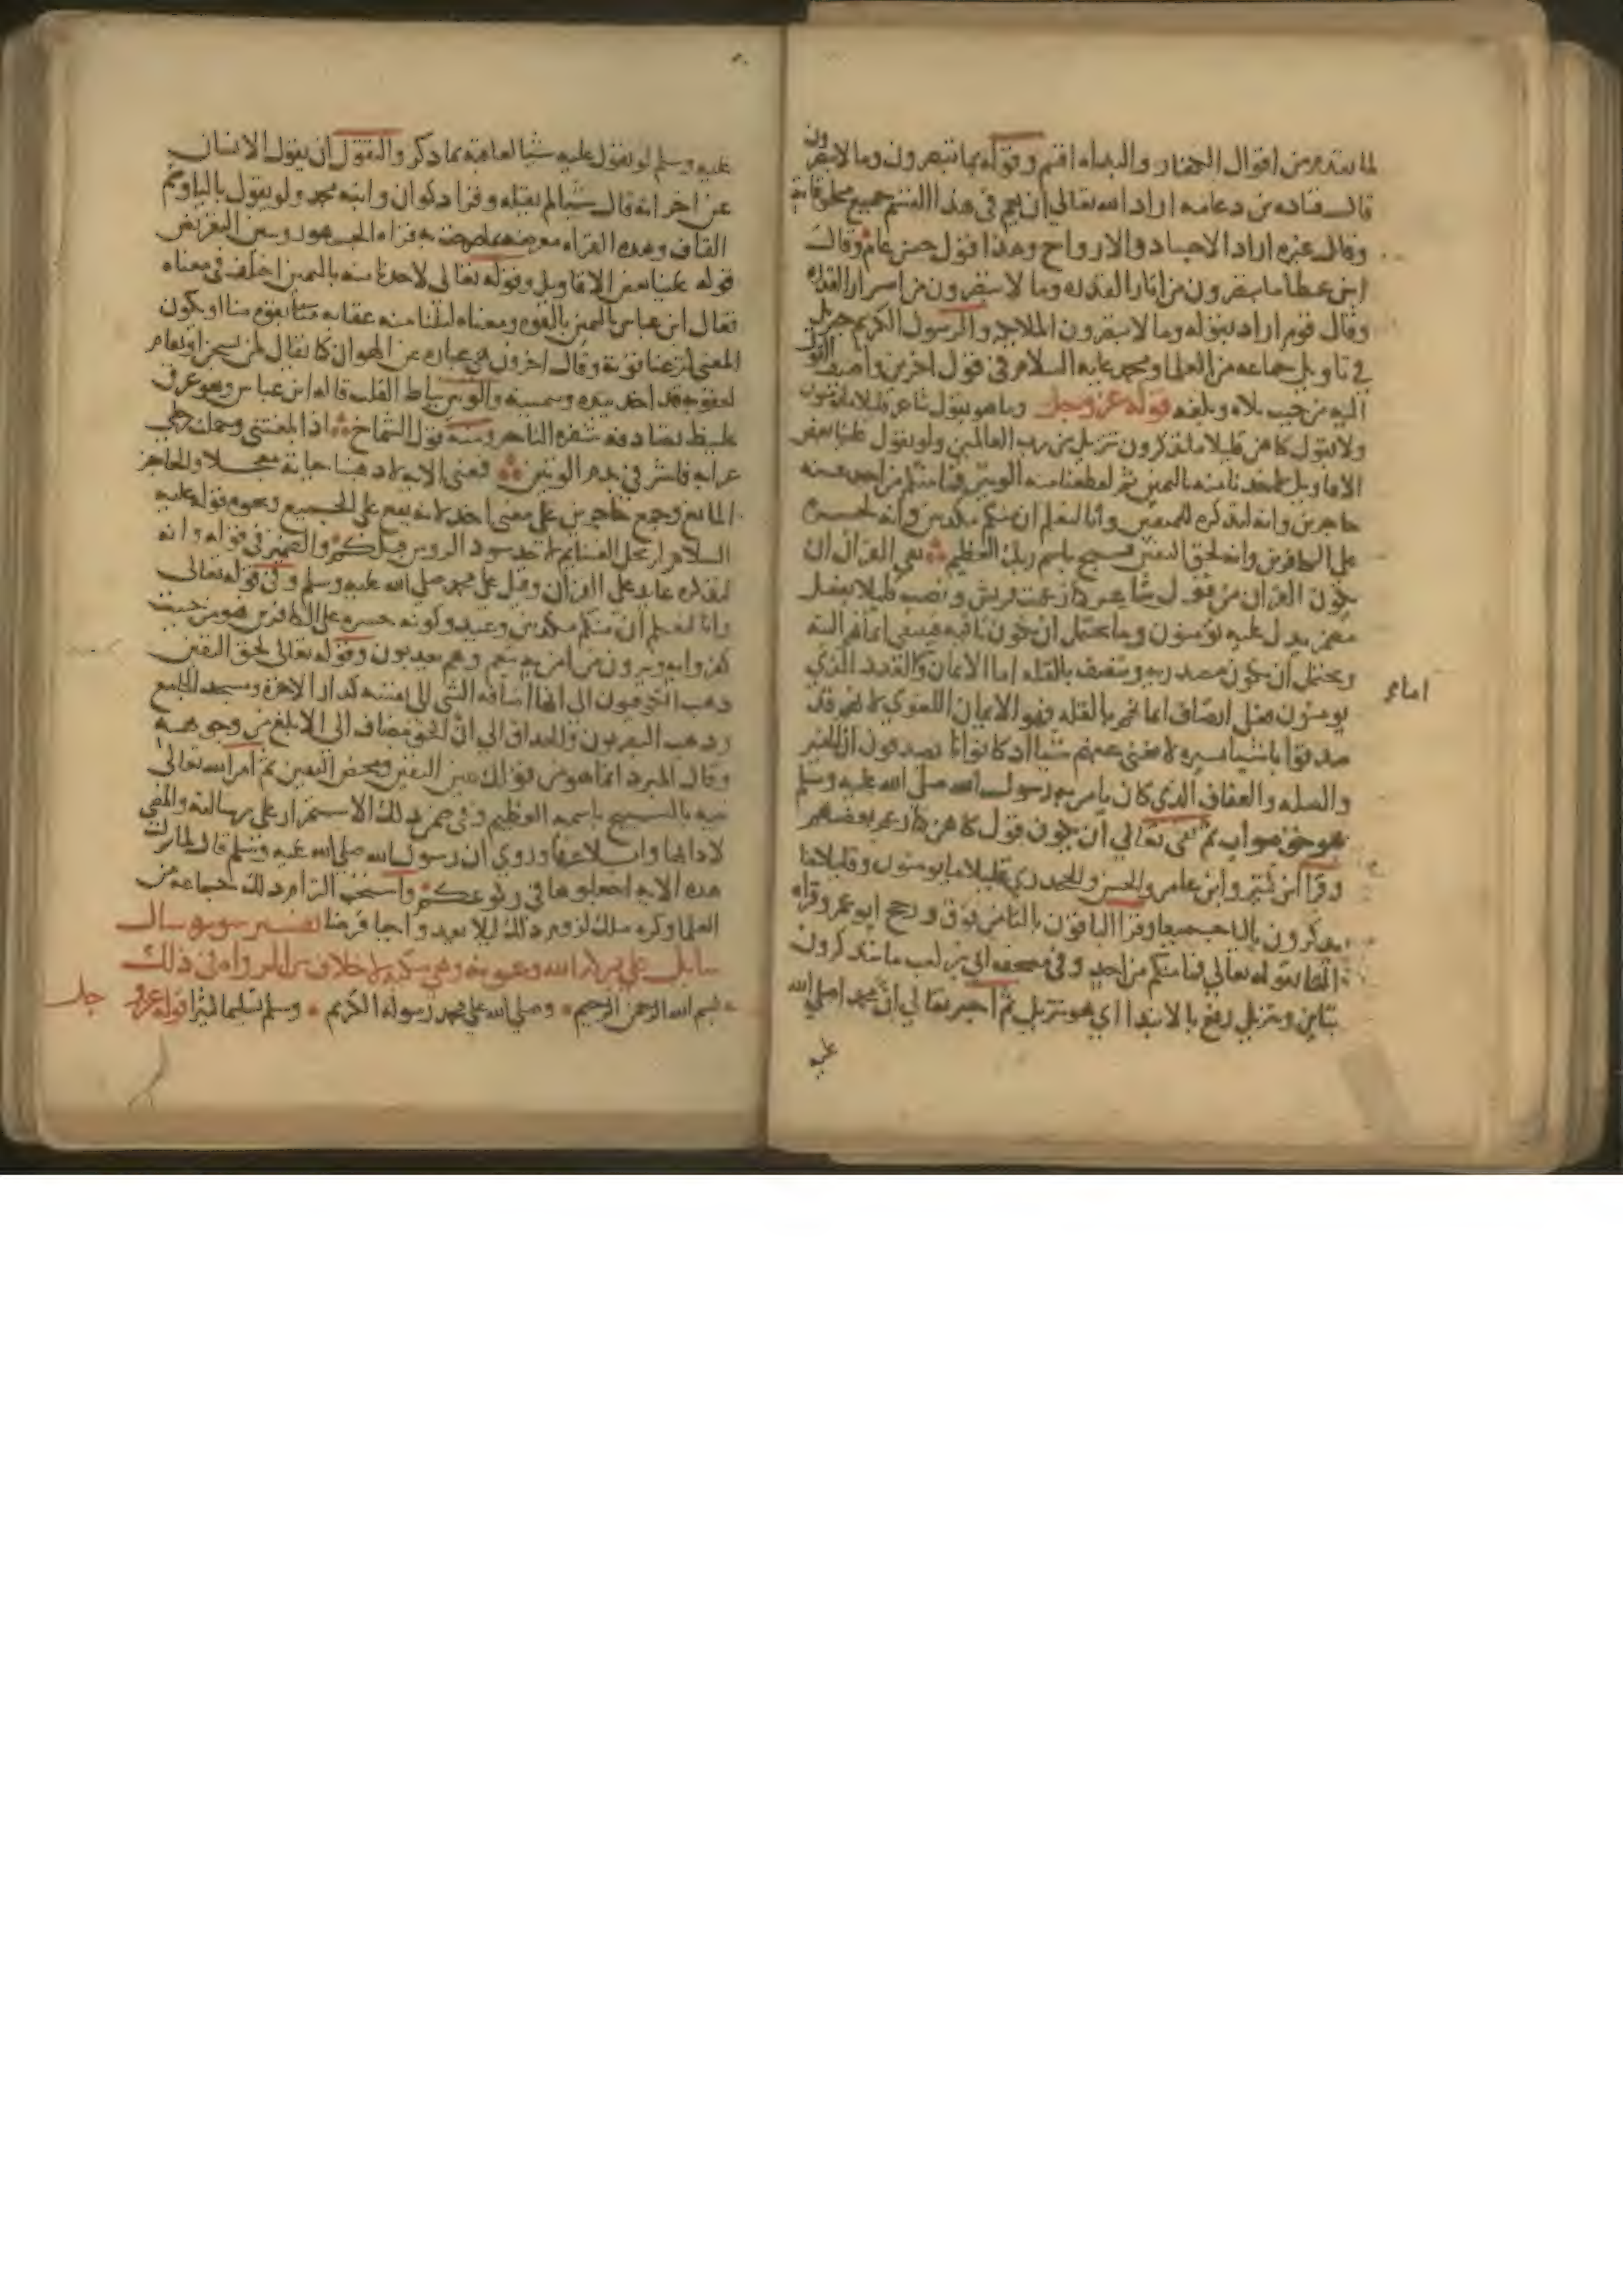 لما تقدم من اقوال الكفار والبداه اقسم وقوله بما تبصرون وما لا تبصرون
قال قتاده بن دعامه اراد الله تعالى ان يعم في هذا القسم جميع مخلوقاته
وقال غيره اراد الاجساد والارواح وهذا قول حسن عام وقال
ابن عطا ما تبصرون من اثار القدره وما لا تبصرون من اسرار القدره
وقال قوم اراد بقوله وما لا تبصرون الملايكه والرسول الكريم جبريل
في تاويل جماعه من العلما ومحمد عليه السلام في قول اخرين واضيف القول
اليه من حيث تلاه وبلغه قوله عز وجل وما هو بقول شاعر قليلا ما تومنون
ولا بقول كاهن قليلا ما تذكرون تنزيل من رب العالمين ولو تقول علينا بعض
الاقاويل لاخذنا منه باليمين ثم لقطعنا منه الوتين فما منكم من احد عنه
حاجزين وانه لتذكره للمتقين وانا لنعلم ان منكم مكذبين وانه لحسره
على الكافرين وانه لحق اليقين فسبح باسم ربك العظيم نفى القرآن ان
يكون القران من قول شاعر كما زعمت قريش ونصب قليلا بفعل
مضمر يدل عليه تومنون وما يحتمل ان تكون نافيه فينتفي ايمانهم البته
ويحتمل ان يكون مصدريه ويتصف بالقله اما الايمان واما القدر الذي
يومنون فعلى اتصاف ايمانهم بالقله فهو الايمان اللغوي لانهم قد
صدقوا باشيا يسيره لا تغني عنهم شيا اذ كانوا يصدقون ان الخير
والصله والعفاف الذي كان يامر به رسول الله صلى الله عليه وسلم
هو حق صواب ثم نفى تعالى ان يكون قول كاهن كما زعم بعضهم
وقرا ابن كثير وابن عامر والحسن والجحدري قليلا ما يومنون وقليلا ما
يذكرون باليا جميعا وقرا الباقون بالتا من فوق ورجح ابو عمرو قراه
التا بقوله تعالى فما منكم من احد وفي مصحف ابي بن كعب ما تتذكرون
بتاين وتنزيل رفع بالابتدا اي هو تنزيل ثم اخبر تعالى ان محمدا صلى الله
عليه
امام
عليه وسلم لو تقول عليه شيا لعاقبه بما ذكر والتقول ان يقول الانسان
عن اخر انه قال شيا لم يقله وقرا ذكوان وابنه محمد ولو يقول باليا وضم
القاف وهذه القراه معرضه بما صرحت به قراه الجمهور ويبين التعريض
قوله علينا بعض الاقاويل وقوله تعالى لاخذنا منه باليمين اختلف في معناه
فقال ابن عباس باليمين بالقوه ومعناه لنلنا منه عقابه بقوه منا او يكون
المعنى لنزعنا قوته وقال اخرون هي عباره عن الهوان كما يقال لمن يسجن او يقام
لعقوبه قد اخذ بيده وبيمينه والوتين نياط القلب قاله ابن عباس وهو عرق
غليظ تصادفه شفره الناحر ومنه قول الشماخ اذا بلغتني وحملت رحلي
عرابه فاشرقي بدم الوتين فمعنى الايه لاذهبنا حياته معجلا والحاجز
المانع وجمع حاجزين على معنى احد لانه يقع على الجميع ونحوه قوله عليه
السلام ولم تحل الغنايم لاحد سود الروس قبلكم والضمير في قوله وانه
لتذكره عايد على القران وقيل على محمد صلى الله عليه وسلم وفي قوله تعالى
وانا لنعلم ان منكم مكذبين وعيد وكونه حسره على الكافرين هو من حيث
كفروا به ويرون من امن به ينعم وهم يعذبون وقوله تعالى لحق اليقين
ذهب الكوفيون الى انها اضافه الشي الى نفسه كدار الاخره ومسجد الجامع
وذهب البصريون والحذاق الى ان الحق مضاف الى الابلغ من وجوهه
وقال المبرد انما هو من قولك عين اليقين ومحض اليقين ثم امر الله تعالى
نبيه بالتسبيح باسمه العظيم وفي ضمن ذلك الاستمرار على رسالته والمضي
لادايها وابلاغها وروي ان رسول الله صلى الله عليه وسلم قال لما نزلت
هذه الايه اجعلوها في ركوعكم واستحب التزام ذلك جماعه من
العلما وكره مالك لزوم ذلك ليلا يعد واجبا فرضا تفسير سوره سال
سايل على بركه الله وعونه وهي مكيه لا خلاف بين الرواه في ذلك
بسم الله الرحمن الرحيم وصلى الله على محمد رسوله الكريم وسلم تسليما كثيرا قوله عز و جل